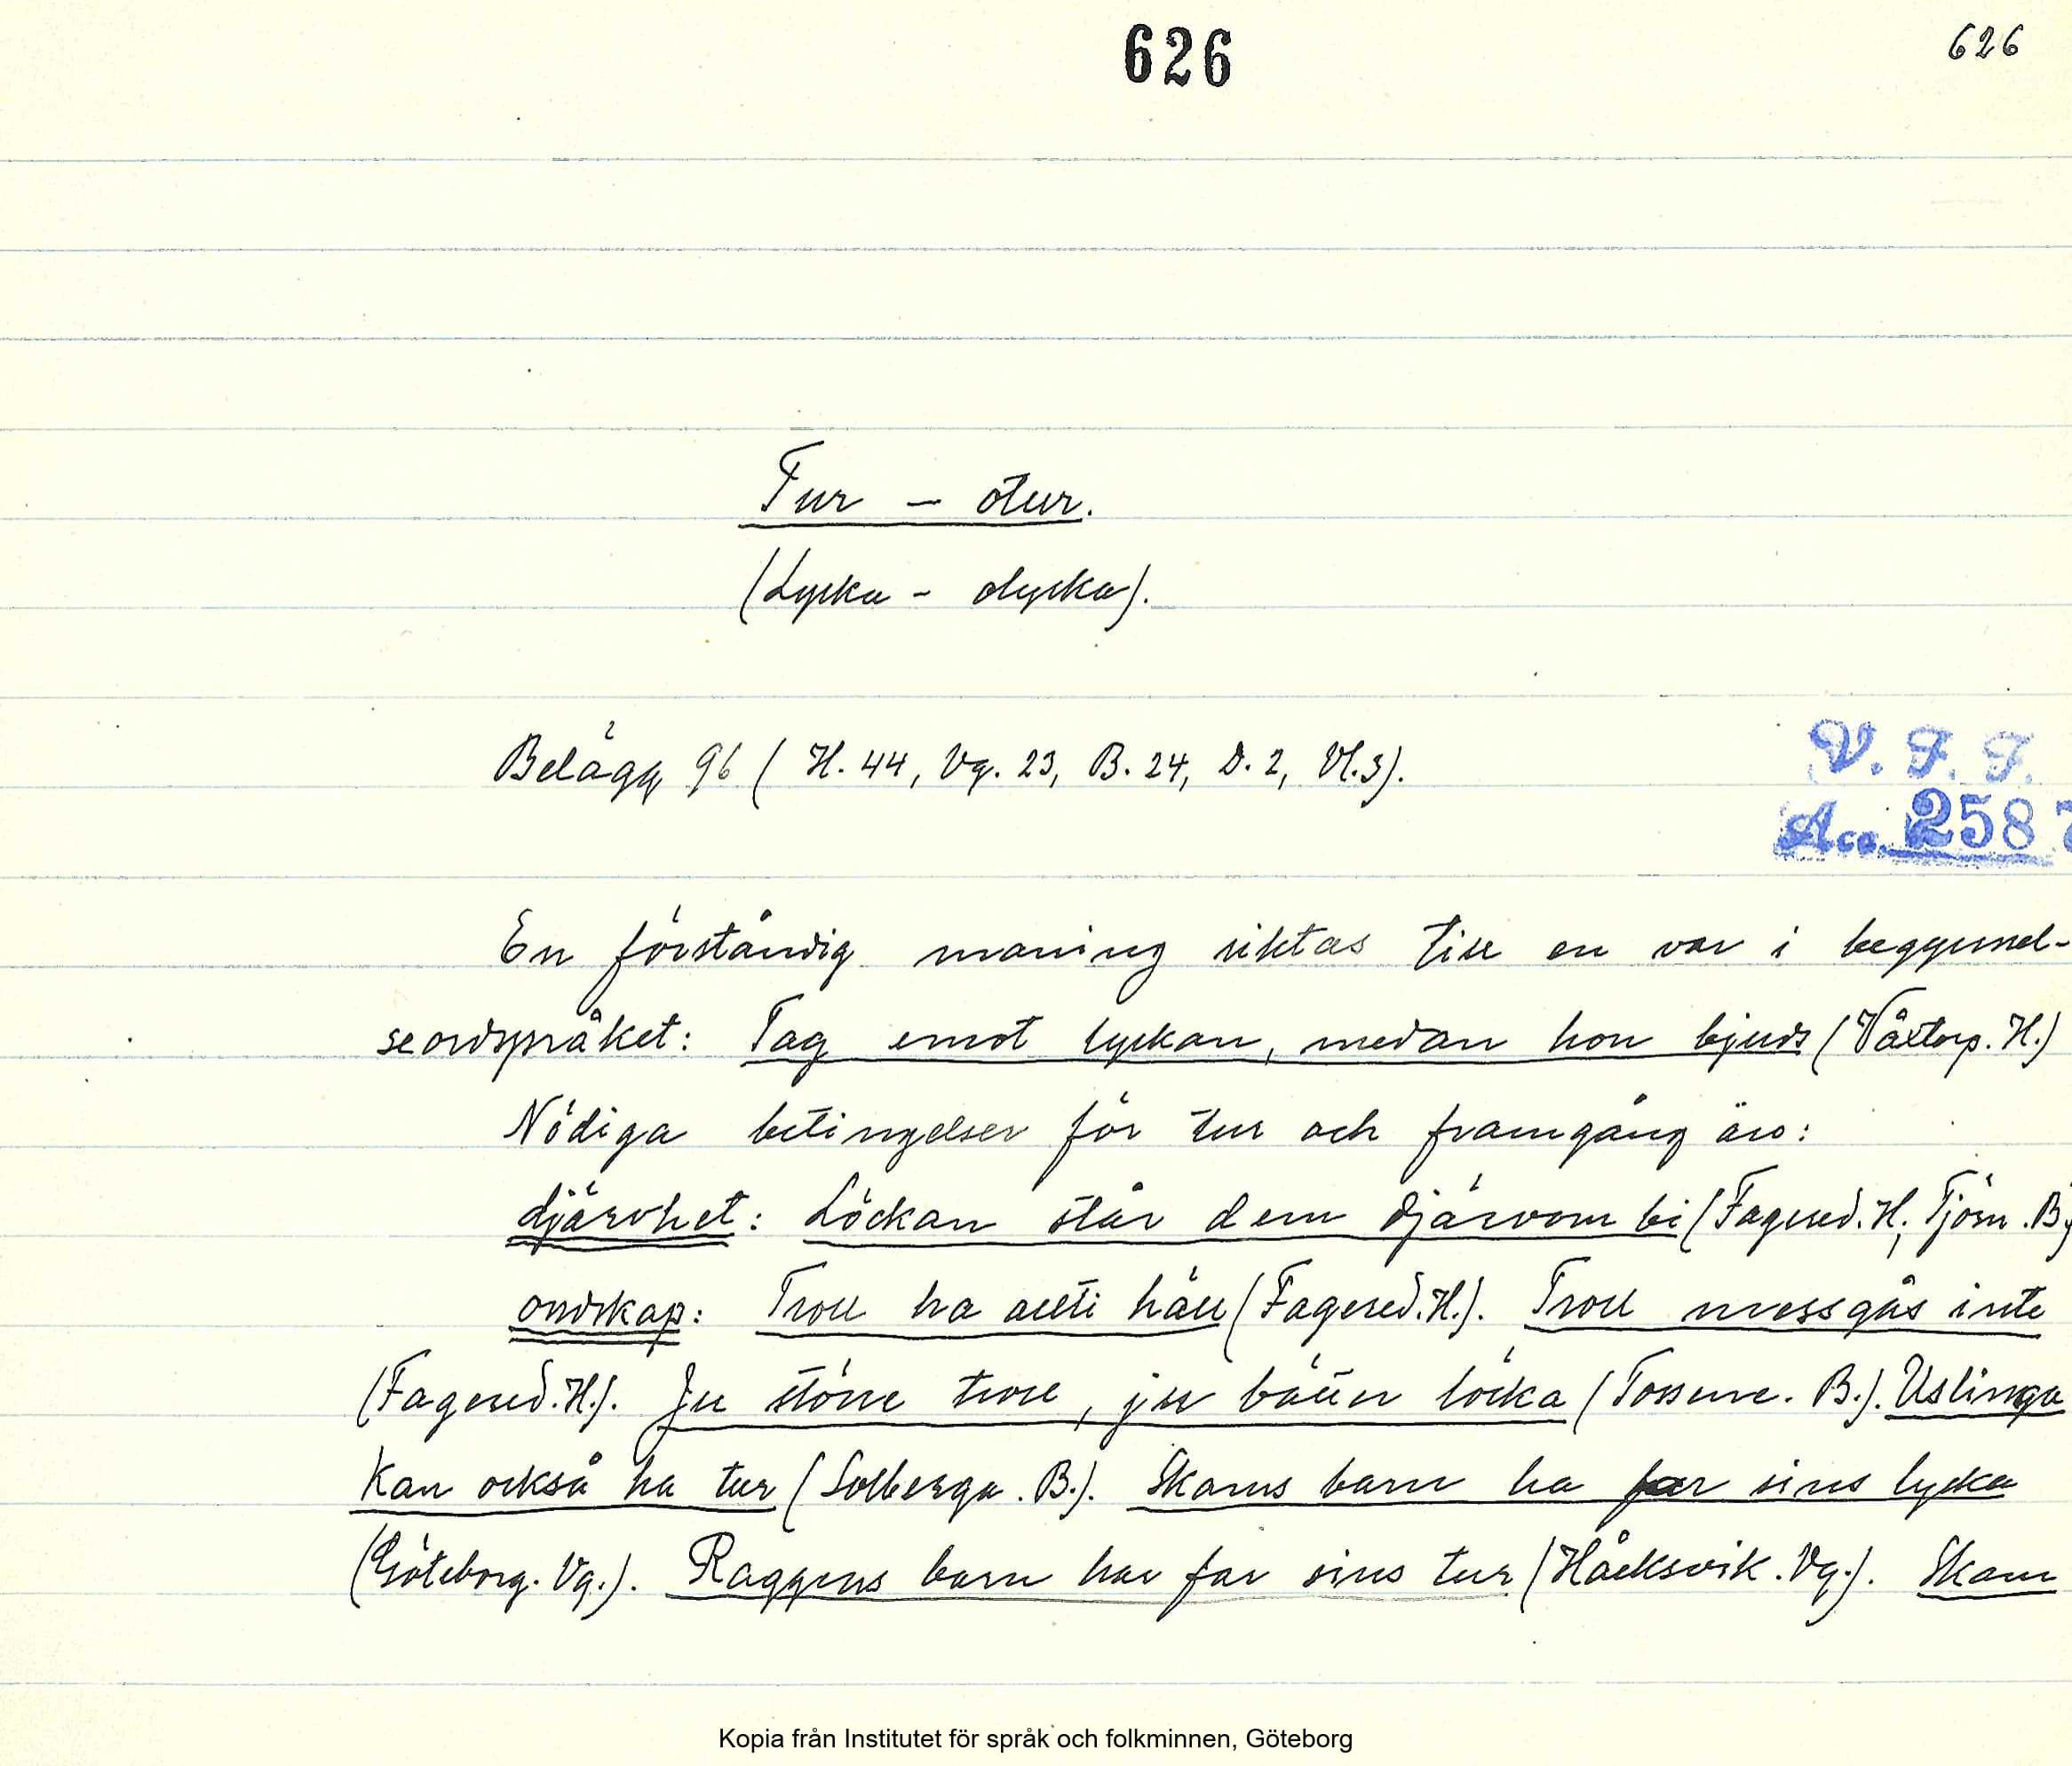 626
626
Tur – otur.
(Lycka – olycka).
Belägg 96 ( H. 44, Vg. 23, B. 24, D. 2, Vl. 3).
V. F. F.
Acc. 258
En förståndig maning riktas till en var i begynnel-
seordspråket: Tag emot lyckan, medan hon bjuds (Våxtorp. H.)
Nödiga betingelser för tur och framgång äro:
djärvhet: Löckan står dem djärvom bi (Fagered. H, Tjörn. B.)
ondskap: Troll ha allti häll (Fagered. H.). Troll messgås inte
(Fagered. H.). Ju större troll, ju bätter löcka (Tossene. B.). Uslinga
kan också ha tur (Solberga. B.). Skams barn ha far sins lycka
(Göteborg. Vg.). Raggens barn har far sins tur (Håcksvik. Vg.). Skam
Kopia från Institutet för språk och folkminnen, Göteborg